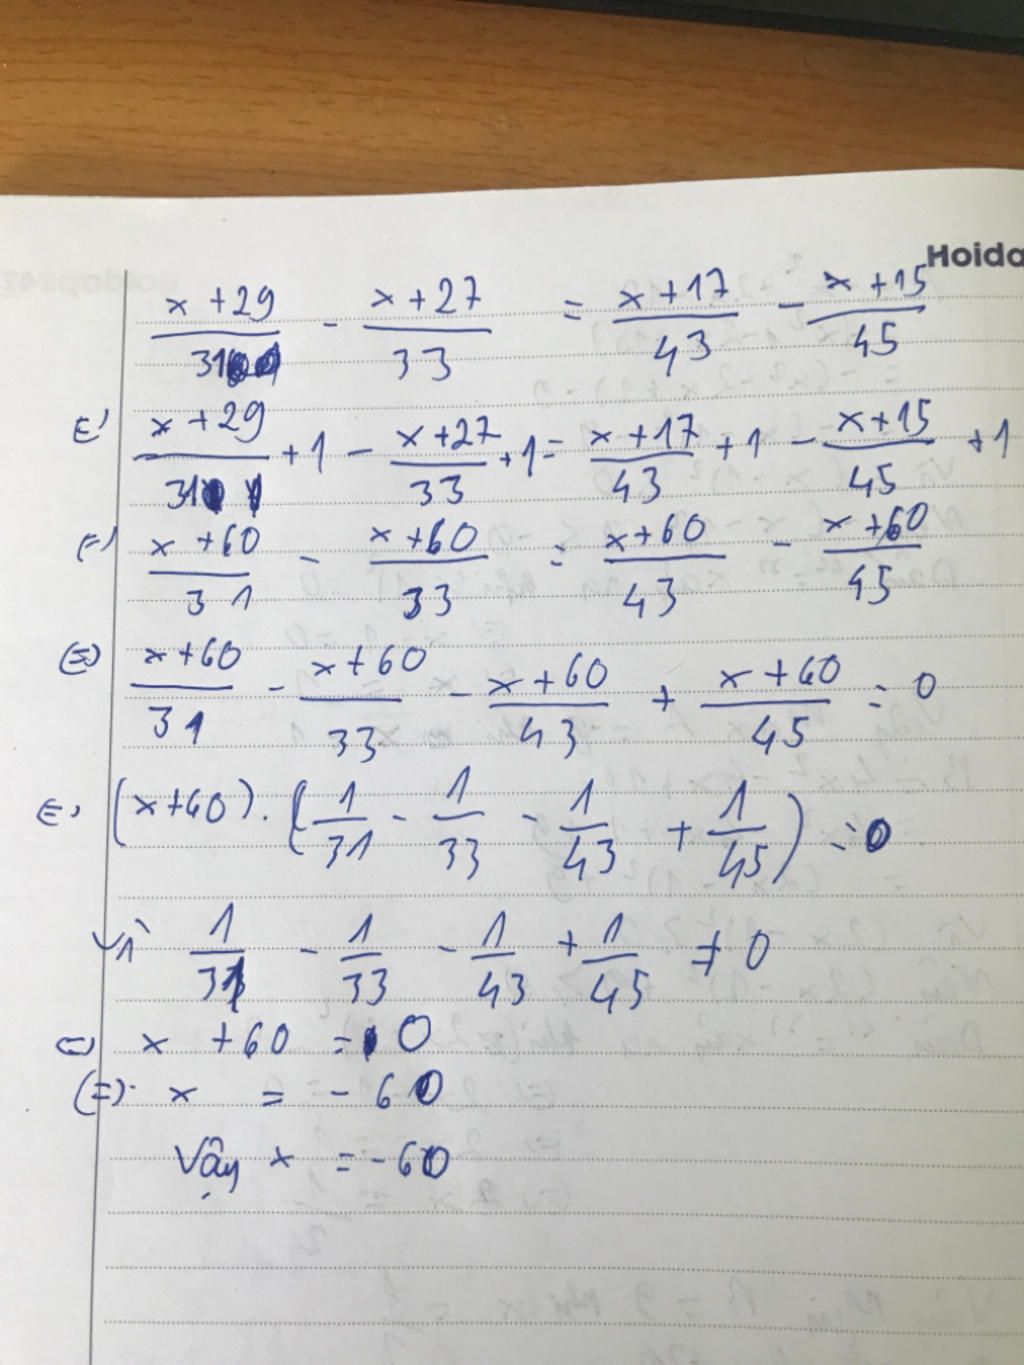 Hoida
x + 29 / 31 - x + 27 / 33 = x + 17 / 43 - x + 15 / 45
⇔ x + 29 / 31 + 1 - x + 27 / 33 + 1 = x + 17 / 43 + 1 - x + 15 / 45 + 1
⇔ x + 60 / 31 - x + 60 / 33 = x + 60 / 43 - x + 60 / 45
⇔ x + 60 / 31 - x + 60 / 33 - x + 60 / 43 + x + 60 / 45 = 0
⇔ (x + 60) . (1/31 - 1/33 - 1/43 + 1/45) = 0
Vì 1/31 - 1/33 - 1/43 + 1/45 ≠ 0
⇔ x + 60 = 0
⇔ x = - 60
Vậy x = - 60